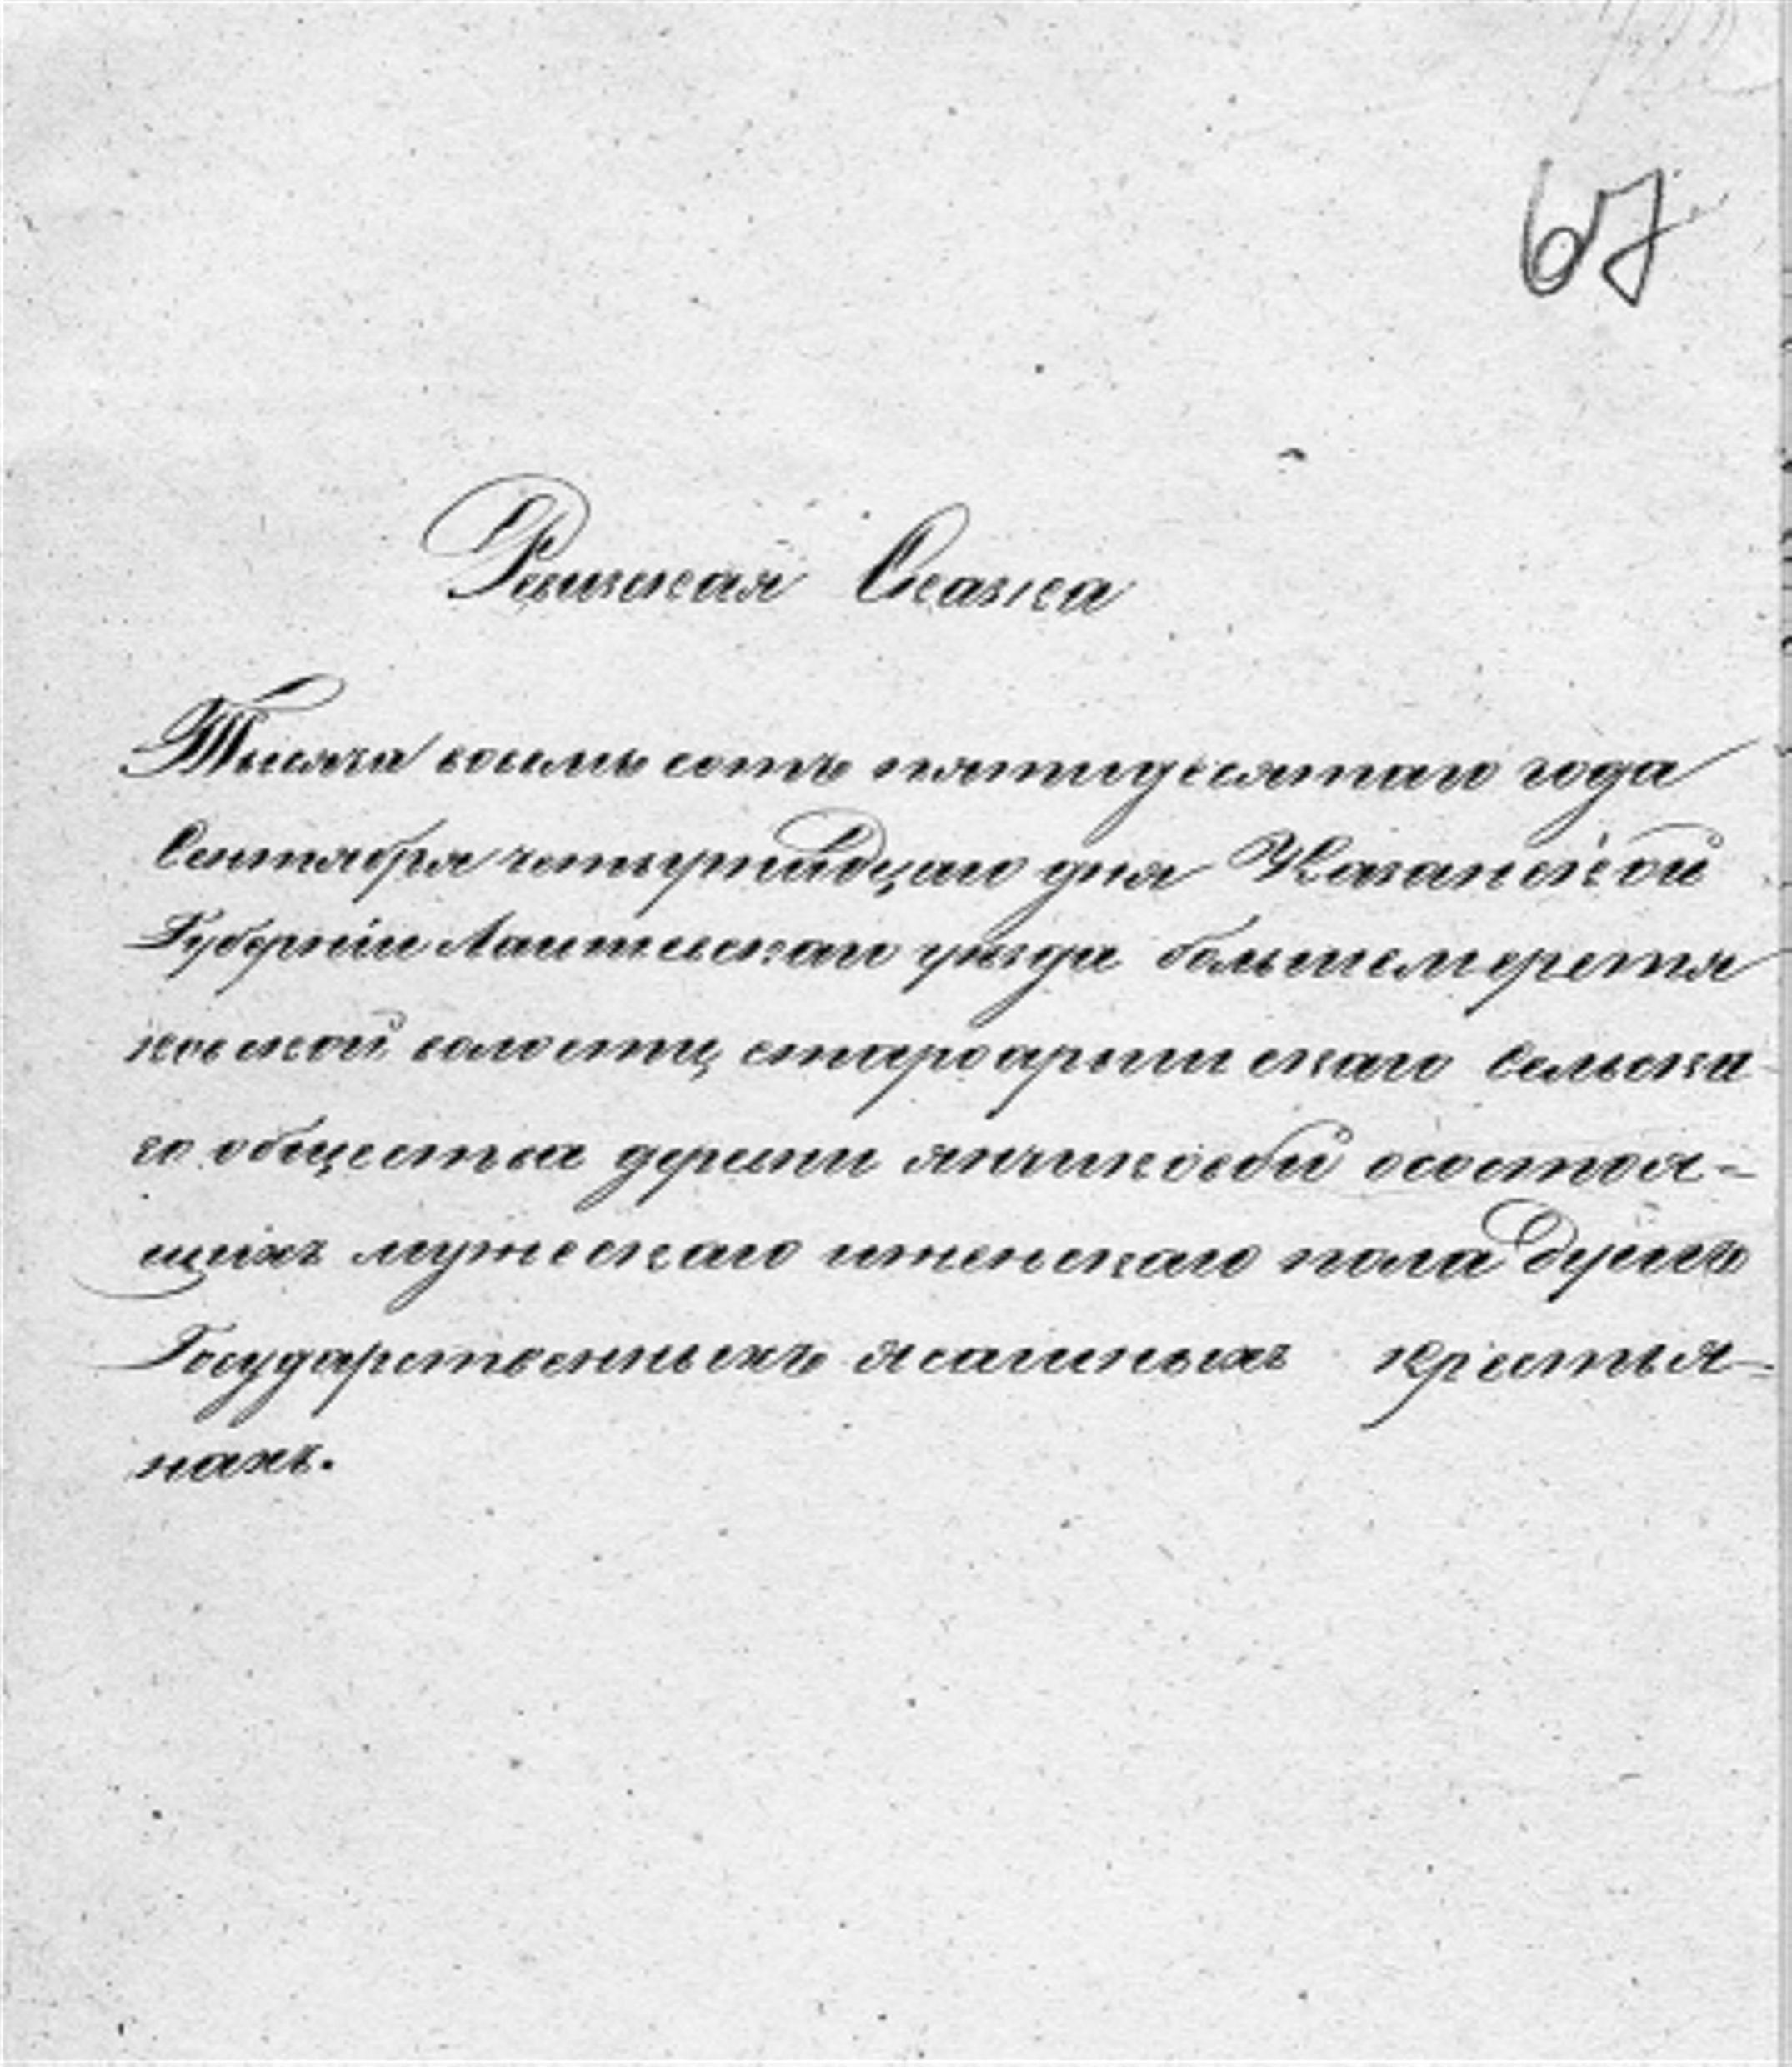 67
Ревизская Сказка
Тысяча восемь сотъ пятидесятаго года
Сентября четыртнадцаго дня Казанской
Губерніи Лаишевскаго уезда большемеретя
ковской волости, староарышскаго Сельска
го общества деревни янчиковой осостоя=
щихъ мужескаго иженскаго пола душъ
Государственныхъ ясашныхъ крестья=
нахъ.